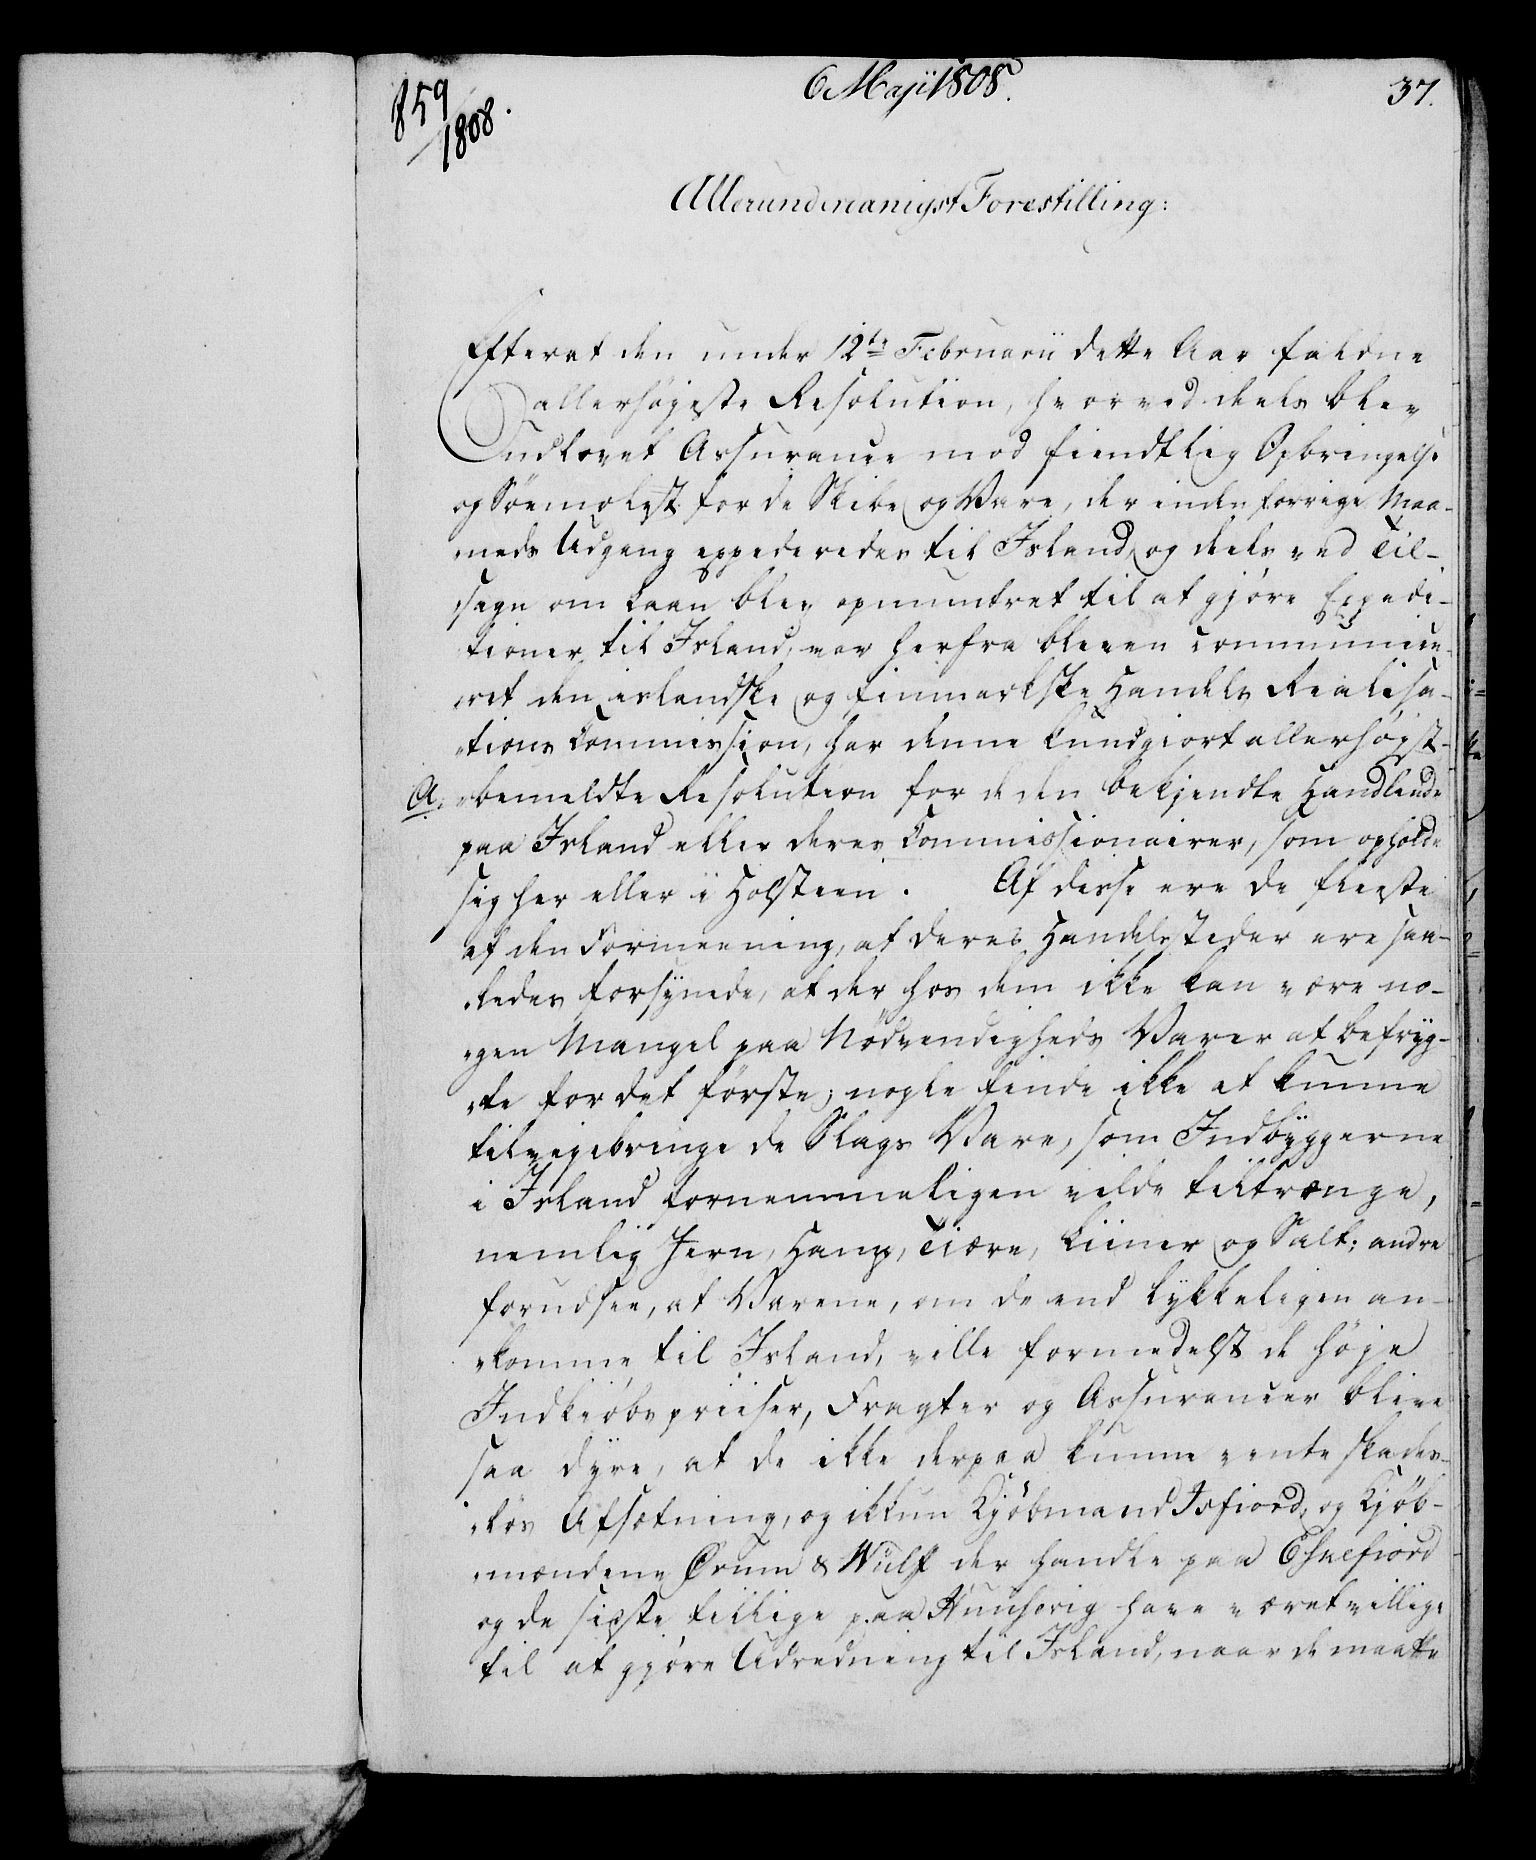 859
1808.
6 Maji 1808.
37.
Allerunderdanigst Forestilling:
Efterat den under 12te Februarii dette Aar faldne
allerhøjeste Resolution, hvorved deels blev
Indlovet Assurance mod fiendtlig Opbringelse
og Søemolest for de Skibe og Vare, der inden forrige Maa-
neds Udgang expederedes til Island, og deels ved Til-
sagn om Laan blev opmuntret til at gjøre Expedi-
tioner til Island, var herfra bleven communice-
ret den islandske og finmarkske Handels Realisa-
tions Commission, har denne kundgiort allerhøjst-
A. bemeldte Resolution for de den bekjendte Handlende
paa Island eller deres Commissionairer, som opholde
sig her eller i Holsteen. Af disse ere de fleeste
af den Formeening, at deres Handelssteder ere saa-
ledes forsynede, at der hos dem ikke kan være no-
gen Mangel paa Nødvendigheds Varer at befryg-
te for det første; nogle finde ikke at kunne
tilvejebringe de Slags Vare, som Indbyggerne
i Island fornemmeligen vilde tiltrænge,
nemlig Jern, Hamp, Tiære, Liiner og Salt; andre
forudsee, at Varene, om de end lykkeligen an-
komme til Island, ville formedelst de høje
Indkiøbspriiser, Fragter og Assurancer blive
saa dyre, at de ikke derpaa kunne vente skades-
løs Afsætning, og ikkun Kjøbmand Isfiord, og Kjøb-
mændene Ørum & Wulff der handle paa Eskefiord
og de sidste tillige paa Huusevig have været villige
til at gjøre Udredning til Island, naar de maatte